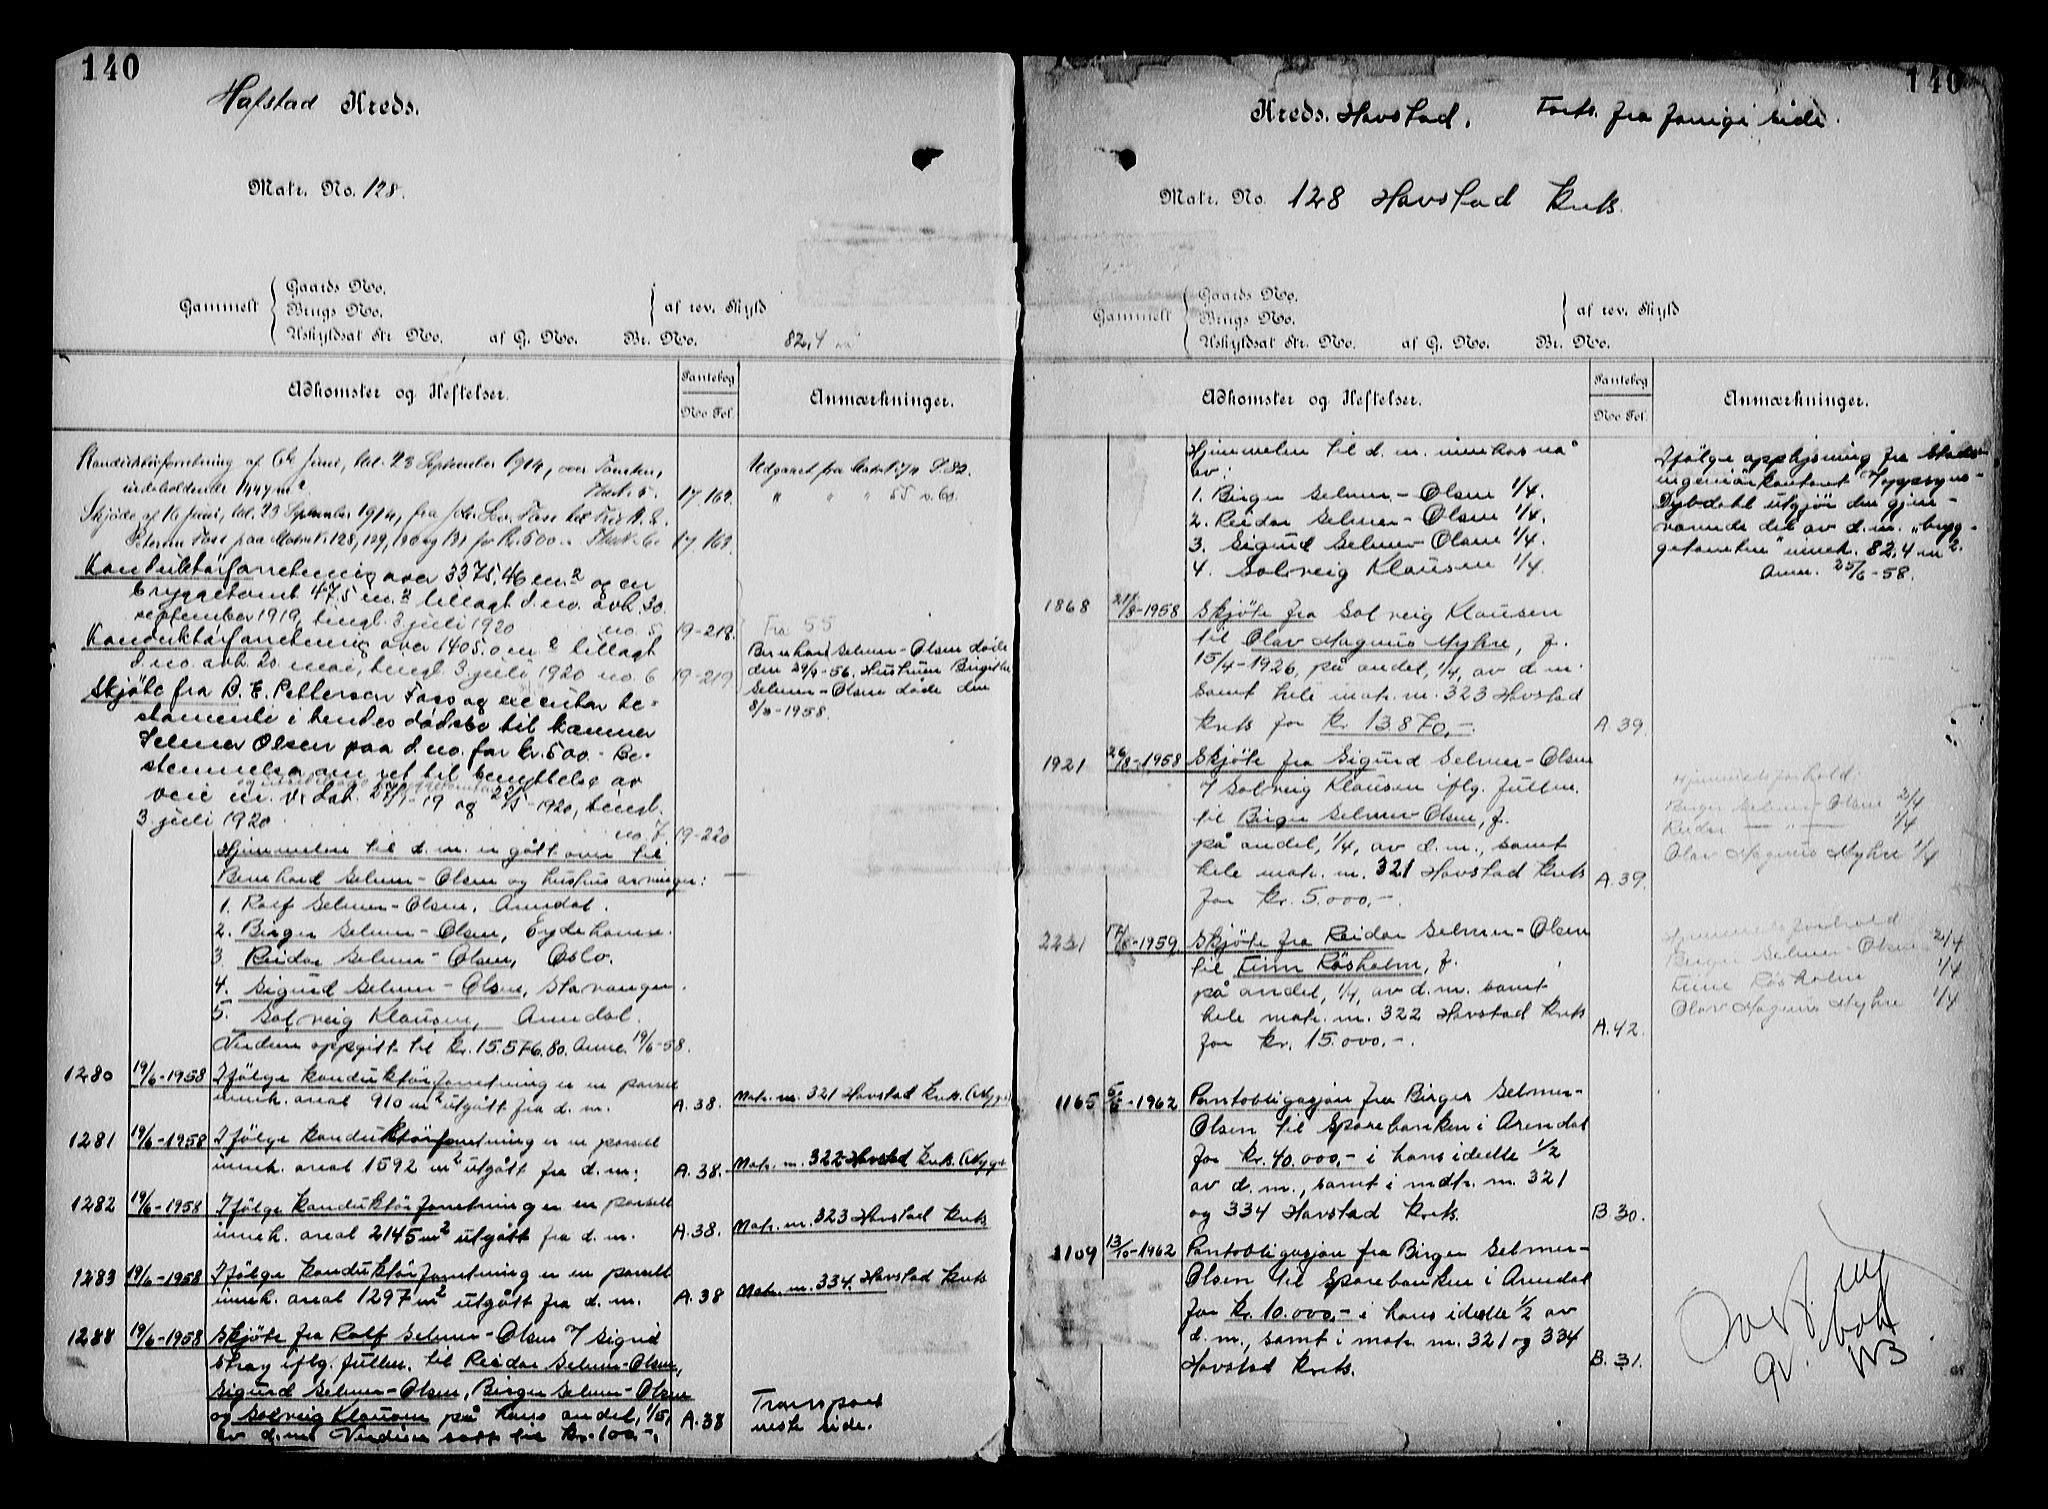 140
Hafstad Kreds.
Matr. No. 128.
Gammelt
Gaards No.
Brugs No.
Uskyldsat Str. No. af G. No. Br. No.
af rev. Skyld
82,4 m
Adkomster og Heftelser.
Pantebog
No Fol.
Anmærkninger.
Konduktörforretning af 6te Juni, tol. 23 September 1914, over Tomten,
indeholdende 1447 m². No. 5. 17.162.
Skjøde af 16 Juni, tol. 23 September 1914, fra
Petersen paa Matr. No. 128, 129, 130 og 131 for Kr. 500.- 17 163.
Udgaaet fra Matr. No.
" " " 55 & 60.
Konduktörforretning over 3375,46 m.² og en
bryggetomt 475 m.² tillagt d. no. avh. 30.
september 1919, tingl. 3 juli 1920 no. 5 19-218.
Konduktörforretning over 1405.0 m² tillagt
d. no. avh. 20. mai, tingl. 3 juli 1920 no. 6 19-219
Fra 55
Bernhard Selmer-Olsen døde
den 29/9-56. Hustruen Birgithe
Selmer-Olsen døde den
8/3-1958.
Skjøte fra B. E. Pettersen Foss og executor te-
stamenti i hendes dødsbo til kæmner
Selmer Olsen paa d. no. for kr. 500.- Be-
stemmelse om ret til benyttelse av
veie m. v. Dat. 27/9-19 og 22/5-1920, tingl.
3 juli 1920 no. 7. 19-220
Hjemmelen til d. m. er gått over til
Bernhard Selmer-Olsen og hustrus arvinger:
1. Rolf Selmer-Olsen, Arendal.
2. Birger Selmer-Olsen, Eydehavn.
3. Reidar Selmer-Olsen, Oslo.
4. Sigurd Selmer-Olsen, Stavanger.
5. Solveig Klausen, Arendal.
Verdien oppgitt til kr. 15.576.80. Anm. 19/6-58.
1280 19/6-1958 Ifölge konduktörforretning er en parsell
inneh. areal 910 m² utgått fra d. m. A.38. Matr. nr. 321 Havstad Krets. (Bygg)
1281 19/6-1958 Ifölge konduktörforretning er en parsell
inneh. areal 1592 m² utgått fra d. m. A.38. Matr. nr. 322 Havstad Krets. (Bygg)
1282 19/6-1958 Ifölge konduktörforretning er en parsell
inneh. areal 2145 m² utgått fra d. m. A.38. Matr. nr. 323 Havstad Krets
1283 19/6-1958 Ifölge konduktörforretning er en parsell
inneh. areal 1297 m² utgått fra d. m. A.38 Matr. nr. 334. Havstad Krets
1288 19/6-1958 Skjöte fra Rolf Selmer-Olsen / Sigrid
Stray iflg. fullm. til Reidar Selmer-Olsen,
Sigurd Selmer-Olsen, Birger Selmer-Olsen
og Solveig Klausen på hans andel, 1/5, A.38
av d. m. Verdien satt til kr. 100.-.
Transport
neste side.
140
Kreds. Havstad. Forts. fra forrige side.
Matr. No. 128 Havstad Krets.
Gammelt
Gaards No.
Brugs No.
Uskyldsat Str. No. af G. No. Br. No.
af rev. Skyld
Adkomster og Heftelser.
Pantebog
No Fol.
Anmærkninger.
Hjemmelen til d. m. innehas nå
av:
1. Birger Selmer-Olsen 1/4.
2. Reidar Selmer-Olsen 1/4.
3. Sigurd Selmer-Olsen 1/4.
4. Solveig Klausen 1/4.
Ifölge opplysning fra Stads-
ingeniörkontoret v/oppsyns-
Dybdahl utgjör den gjen-
værende del av d. m. "bryg-
getomten" inneh. 82,4 m².
Anm. 25/6-58.
1868 21/8-1958 Skjöte fra Solveig Klausen
til Olav Magnus Myhre, f.
15/4-1926, på andel, 1/4, av d. m.
samt hele matr. nr. 323 Havstad
Krets for kr 13.870,-. A.39.
1921 26/8-1958 Skjöte fra Sigurd Selmer-Olsen
/ Solveig Klausen iflg. fullm.
til Birger Selmer-Olsen, f.
på andel, 1/4, av d. m., samt
hele matr. nr. 321 Havstad Krets A.39.
for kr. 5.000,-.
Hjemmelsforhold:
Birger Selmer-Olsen 2/4
Reidar — " — 1/4
Olav Magnus Myhre 1/4
2231 17/8-1959 Skjöte fra Reidar Selmer-Olsen
til Finn Røsholm, f.
på andel, 1/4, av d. m. samt
hele matr. nr. 322 Havstad Krets A.42.
for kr. 15.000.-.
Hjemmelsforhold
Birger Selmer-Olsen 2/4
Finn Røsholm 1/4
Olav Magnus Myhre 1/4
1165 5/6-1962 Pantobligasjon fra Birger Selmer-
Olsen til Sparebanken i Arendal
for kr. 40.000,- i hans ideelle 1/2
av d. m., samt i matr. nr. 321
og 334 Havstad Krets. B.30.
2109 13/10-1962 Pantobligasjon fra Birger Selmer-
Olsen til Sparebanken i Arendal
for kr. 10.000,- i hans ideelle 1/2 av
d. m., samt i matr. nr. 321 og 334
Havstad Krets. B.31.